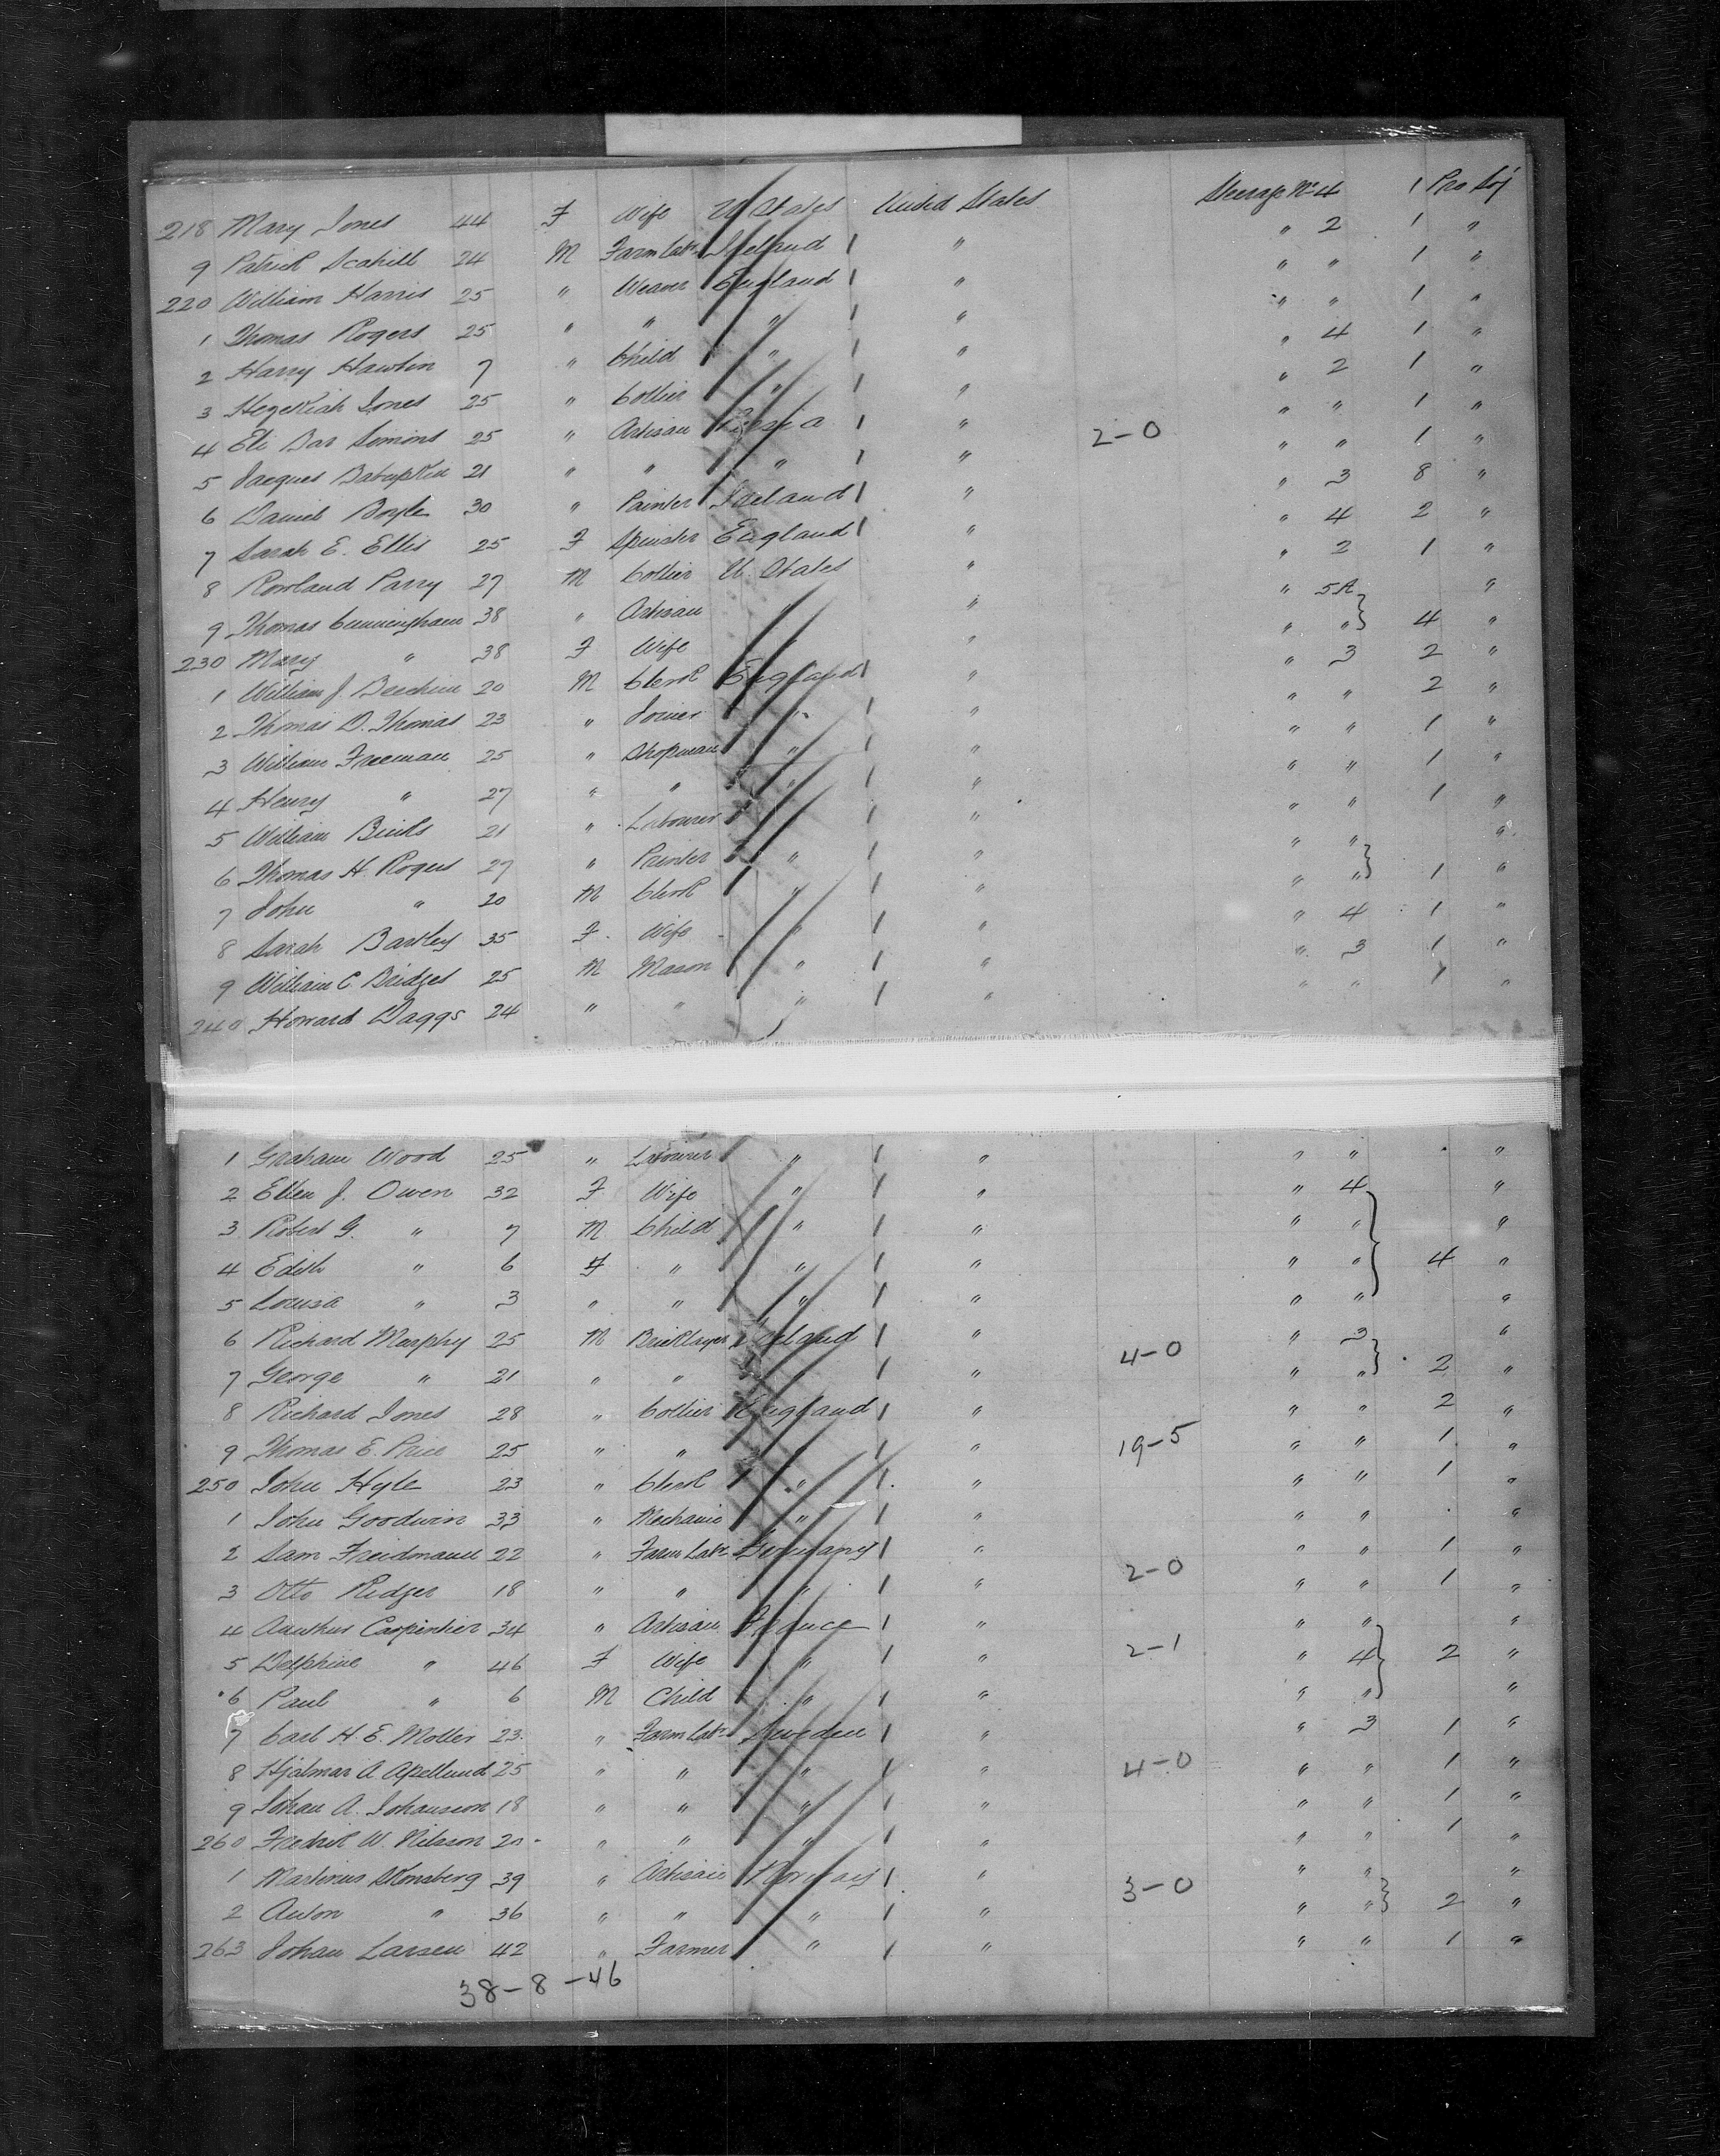 218 Mary Jones 44 F Wife U States United States Steerage No 4 1 Pro Soj
9 Patrick Scahill 24 M Farm Labr Ireland 1 " " 2 1 "
220 William Harris 25 " Weaver England 1 " " " 1 "
1 Thomas Rogers 25 " " " 1 " " " 1 "
2 Harry Hawtin 7 " Child " 1 " " 4 1 "
3 Hezekiah Jones 25 " Collier " 1 " " 2 1 "
4 Eli Bar Simons 25 " Artisan 1 " 2-0 " " 1 "
5 Jacques 21 " " " 1 " " " 1 "
6 Daniel Boyle 30 " Painter Ireland 1 " " 3 8 "
7 Sarah E. Ellis 25 F Spinster England 1 " " 4 2 "
8 Rowland Parry 27 M Collier U. States " " 2 1 "
9 Thomas Cunningham 38 " Artisan " " 5A "
230 Mary " 38 F Wife " " " 4 "
1 William J. 20 M Clerk England 1 " " 3 2 "
2 Thomas D. Thomas 23 " Joiner " 1 " " " 2 "
3 William Freeman 25 " Shopman " 1 " " " 1 "
4 Henry " 27 " " " 1 " " " 1 "
5 William 21 " Labourer " " " 1 "
6 Thomas H. Rogers 27 " Painter " 1 " " " "
7 John " 20 M Clerk " 1 " " " 1 "
8 Sarah Bartley 35 F Wife " 1 " " 4 1 "
9 William C. Bridges 25 M Mason " 1 " " 3 1 "
240 Howard Daggs 24 " " " 1 " " " 1 "
1 Graham Wood 25 " Labourer " 1 " " " "
2 Ellen J. Owen 32 F Wife " 1 " " 4 "
3 Robert G. " 7 M Child " 1 " " " "
4 Edith " 6 F " " 1 " " " 4 "
5 Louisa " 3 " " " 1 " " " "
6 Richard Murphy 25 M Bricklayer Ireland 1 " " 3 "
7 George " 21 " " 1 " 4-0 " " 2 "
8 Richard Jones 28 " Collier England 1 " " " 2 "
9 Thomas E. Price 25 " " " 1 " 19-5 " " 1 "
250 John Hyle 23 " Clerk " 1 " " " 1 "
1 John Goodwin 33 " Mechanic " 1 " " " "
2 Sam Freidmann 22 " Farm Labr Germany 1 " " " 1 "
3 Otto Ridger 18 " " " 1 " 2-0 " " 1 "
4 Carpentier 34 " Artisan France 1 " " " "
5 Delphine " 46 F Wife " 1 " 2-1 " 4 2 "
6 Paul " 6 M Child " 1 " " " "
7 Carl H. E. Moller 23 " Farm Labr Sweden 1 " " 3 1 "
8 Hjalmar A. Apellund 25 " " " 1 " 4-0 " " 1 "
9 Johan A. Johansson 18 " " " 1 " " " 1 "
260 Fredrik W. Nilsson 20 " " " " " " 1 "
1 Martinus 39 " Artisan Norway 1 " " " "
2 Anton " 36 " " " 1 " 3-0 " " 2 "
263 Johan Larsen 42 " Farmer " 1 " " " 1 "
38-8-46